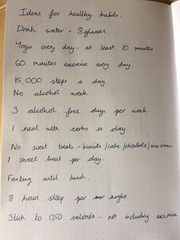 Ideas for healthy habits:
Drink water - 8 glasses
Yoga every day - at least 10 minutes
60 minutes exercise every day
15,000 steps a day.
No alcohol week
3 alcohol free days per week.
1 meal with carbs a day.
No sweet treats - biscuits / cake / chocolate / ice cream
1 sweet treat per day.
Fasting until lunch.
8 hour sleep per night.
Stick to 1350 calories - not including exercise